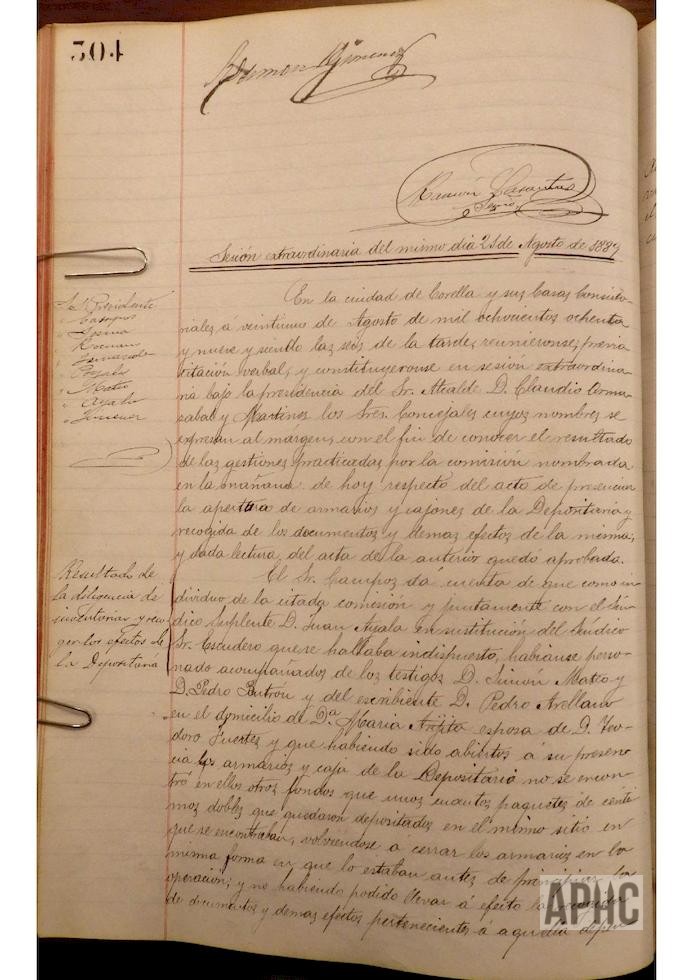 304
Ramón Jimenez
Ramón Lasantas
Srio.
Sesión extraordinaria del mismo dia 21 de Agosto de 1889
Sr. Presidente
" Campos
" Mateo
" Ayala
" Jimenez
En la ciudad de Corella y sus Casas Consisto-
riales á veintiuno de Agosto de mil ochocientos ochenta
y nueve y siendo las seis de la tarde, reunieronse, previa
citación verbal, y constituyeronse en sesión extraordina
ria bajo la presidencia del Sr. Alcalde D. Claudio
y Martinez los Sres. Concejales cuyos nombres se
expresan al márgen, con el fin de conocer el resultado
de las gestiones practicadas por la comisión nombrada
en la mañana de hoy respecto del acto de presenciar
la apertura de armarios y cajones de la Depositaria y
recogida de los documentos y demas efectos de la misma,
y dada lectura del acta de la anterior quedó aprobada.
Resultado de
la diligencia de
inventariar y reco-
ger los efectos de
la Depositaria
El Sr. Campos dá cuenta de que como in
dividuo de la citada comisión y juntamente con el Sín
dico suplente D. Juan Ayala en sustitución del Síndico
Sr. Escudero que se hallaba indispuesto, habianse perso-
nado acompañados de los testigos D. Simón Mateo y
D. Pedro Butrón y del escribiente D. Pedro Arellano
en el domicilio de Dª Maria esposa de D. Teo-
doro Fuertes y que habiendo sido abiertos á su presen
cia los armarios y caja de la Depositaria no se encon
tró en ellos otros fondos que unos cuantos paquetes de centi
mos dobles que quedaron depositados en el mismo sitio en
que se encontraban, volviendose á cerrar los armarios en la
misma forma en que lo estaban antes de principiar la
operación; y no habiendo podido llevar á efecto la recogida
de documentos y demas efectos pertenecientes á aquella depen
APHC